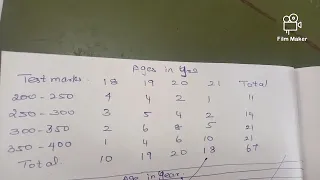 Film Maker
Ages in yrs
Test marks. 18 19 20 21 Total
200-250 4 4 2 1 11
250-300 3 5 4 2 14
300-350 2 6 8 5 21
350-400 1 4 6 10 21
Total. 10 19 20 18 67
Age in year.